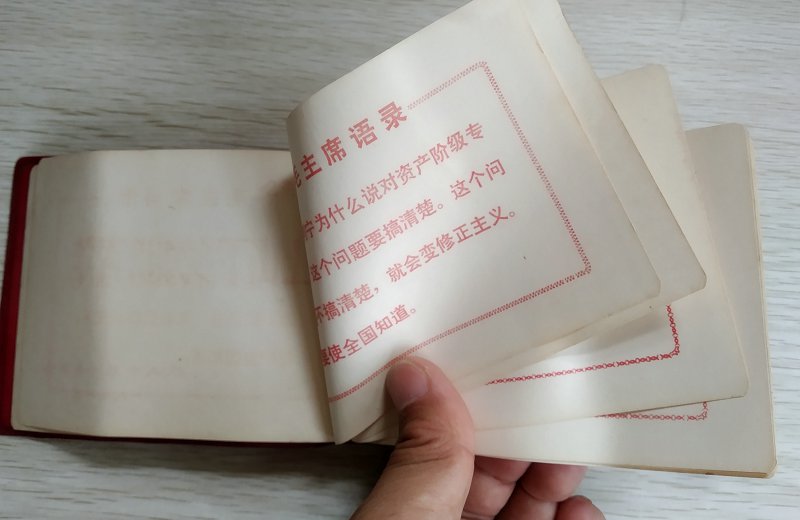 主席语录
宁为什么说对资产阶级专
这个问题要搞清楚。这个问
不搞清楚，就会变修正主义。
要使全国知道。